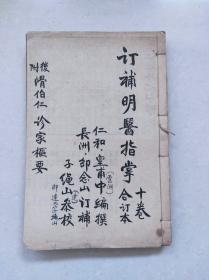 订補明醫指掌
十卷
合订本
仁和·皇甫中編撰
(雲洲)
長洲 邵念山訂補
子繩山參校
後附 滑伯仁 診家樞要